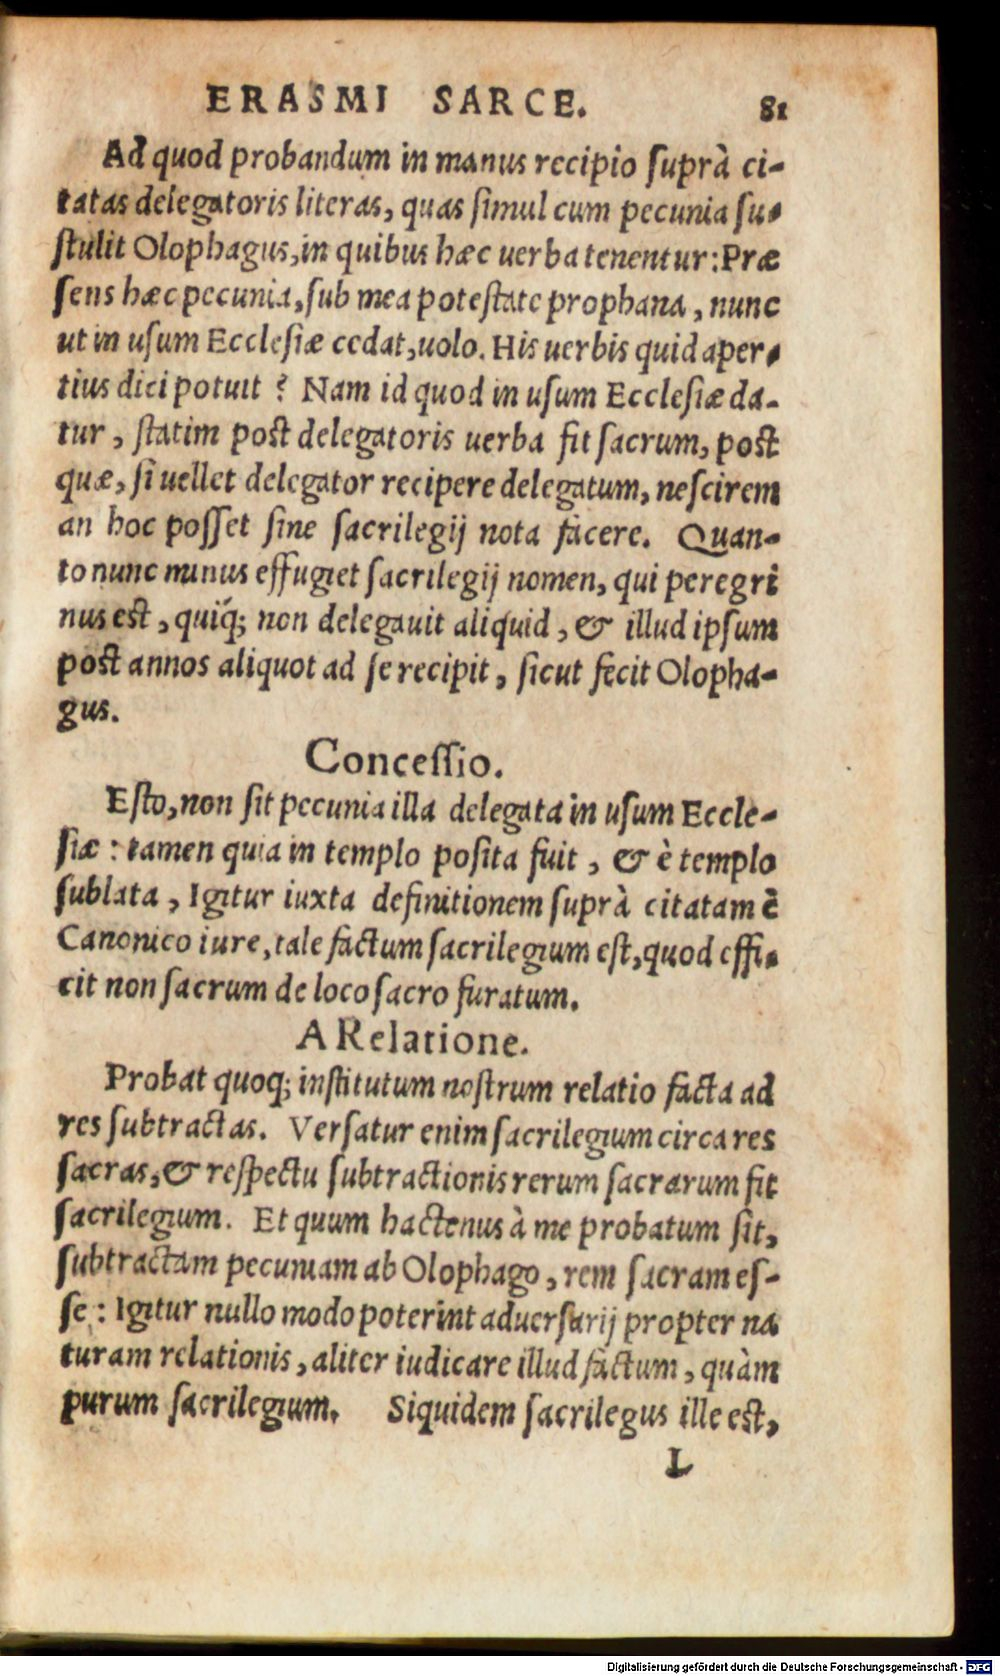 ERASMI SARCE. 81
Ad quod probandum in manus recipio suprà ci-
tatas delegatoris literas, quas simul cum pecunia su-
stulit Olophagus, in quibus hæc uerba tenentur: Præ
sens hæc pecunia, sub mea potestate prophana, nunc
ut in usum Ecclesiæ cedat, uolo. His uerbis quid aper-
tius dici potuit? Nam id quod in usum Ecclesiæ da-
tur, statim post delegatoris uerba fit sacrum, post
quæ, si uellet delegator recipere delegatum, nescirem
an hoc posset sine sacrilegij nota facere. Quan-
to nunc minus effugiet sacrilegij nomen, qui peregri
nus est, quiq́; non delegauit aliquid, & illud ipsum
post annos aliquot ad se recipit, sicut fecit Olopha-
gus.
Concessio.
Esto, non sit pecunia illa delegata in usum Eccle-
siæ: tamen quia in templo posita fuit, & è templo
sublata, Igitur iuxta definitionem suprà citatam ẽ
Canonico iure, tale factum sacrilegium est, quod effi-
cit non sacrum de loco sacro furatum.
A Relatione.
Probat quoq; institutum nostrum relatio facta ad
res subtractas. Versatur enim sacrilegium circa res
sacras, & respectu subtractionis rerum sacrarum fit
sacrilegium. Et quum hactenus à me probatum sit,
subtractam pecuniam ab Olophago, rem sacram es-
se: Igitur nullo modo poterint aduersarij propter na
turam relationis, aliter iudicare illud factum, quàm
purum sacrilegium. Siquidem sacrilegus ille est,
L
Digitalisierung gefördert durch die Deutsche Forschungsgemeinschaft - DFG